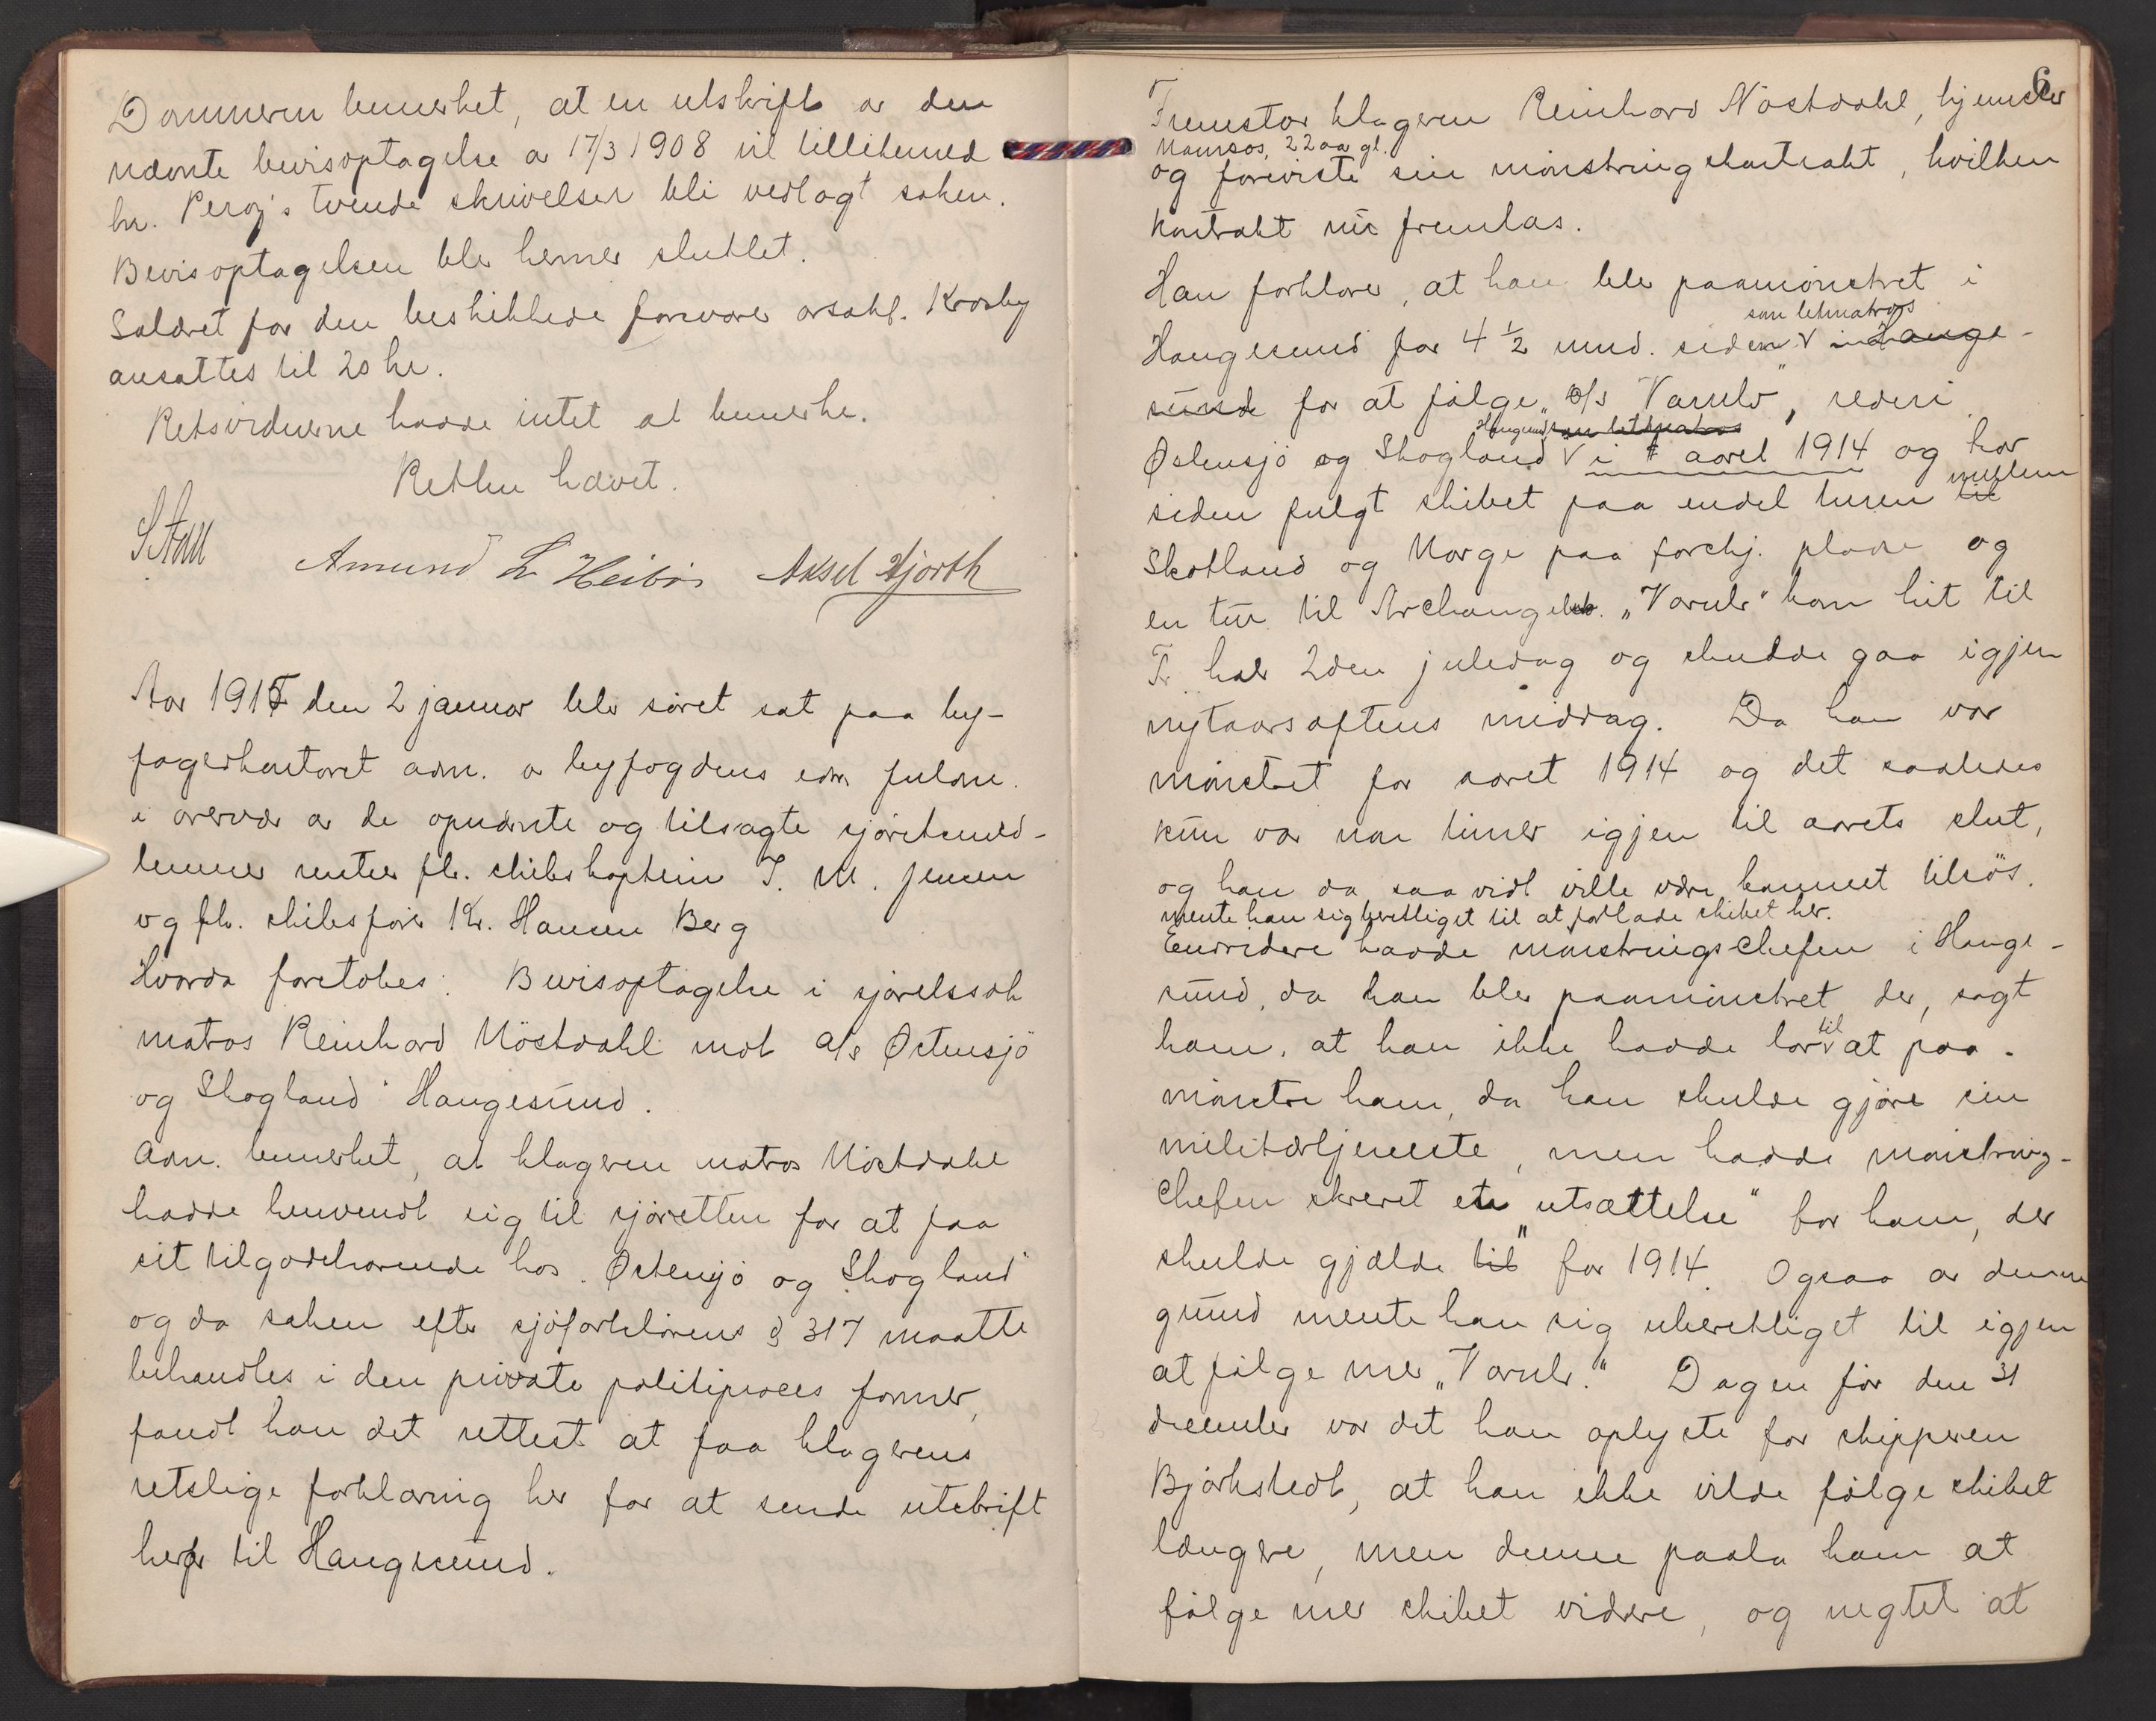 Dommeren bemerket, at en utskrift av den
nævnte bevisoptagelse av 17/3 1908 vil tillikemed
hr. Peroz's tvende skrivelser bli vedlagt saken.
Bevisoptagelsen blev hermed sluttet.
Salæret for den beskikkede forsvarer orsakf. Krosby
ansattes til 20 kr.
Retsvidnerne hadde intet at bemerke.
Retten hævet.
Amund L Heibø Aksel Hjorth
Aar 1915 den 2 januar blev sjøret sat paa by-
fogedkontoret adm. av byfogdens edsv fuldm.
i overvær av de opnævnte og tilsagte sjøretsmed-
lemmer rentier fhv. skibskaptein T. M. Jensen
og fhv. skibsfører Kr. Hansen Berg
Hvorda foretokes: Bevisoptagelse i sjøretssak
matros Reinhard Nöstdahl mot a/s Østensjö
og Skogland Haugesund.
Adm. bemerket, at klageren matros Nöstdahl
hadde henvendt sig til sjøretten for at faa
sit tilgodehavende hos Østensjö og Skogland
og da saken efter sjöfartslovens § 317 maatte
behandles i den private politiproces former,
fandt han det rettest at faa klagerens
retslige forklaring her for at sende utskrift
herav til Haugesund.
6
Fremstod klageren Reinhard Nöstdahl, hjemsted
Namsos, 22 aar gl.
og foreviste sin mönstringskontrakt, hvilken
kontrakt nu fremlas.
Han forklarer, at han blev paamönstret i
som letmatros
Haugesund for 4 1/2 mnd. siden i Hauge-
sund for at fölge "D/S Varulv", rederi
Haugesund som letmatros
Østensjö og Skogland i aaret 1914 og har
mellem
siden fulgt skibet paa endel turer til
Skotland og Norge paa forskj. pladse og
en tur til Archangelsk. "Varulv" kom hit til
Tr.hd 2den juledag og skudde gaa igjen
nytaarsaftens middag. Da han var
mönstret for aaret 1914 og det saaledes
kun var noen timer igjen til aarets slut,
og han da saavidt ville være kommet tilsös.
mente han sig berettiget til at forlade skibet her.
Endvidere hadde mönstringschefen i Hauge-
sund, da han blev paamönstret der, sagt
ham, at han ikke hadde lov til at paa-
mönstre ham, da han skulde gjöre sin
militærtjeneste, men hadde mönstrings-
chefen skrevet en "utsættelse" for ham, der
skulde gjælde til for 1914. Ogsaa av denne
grund mente han sig uberettiget til igjen
at fölge med "Varulv." Dagen för den 31
december var det han oplyste for skipperen
Björkstedt, at han ikke vilde fölge skibet
længere, men denne paala ham at
fölge med skibet videre, og negtet at